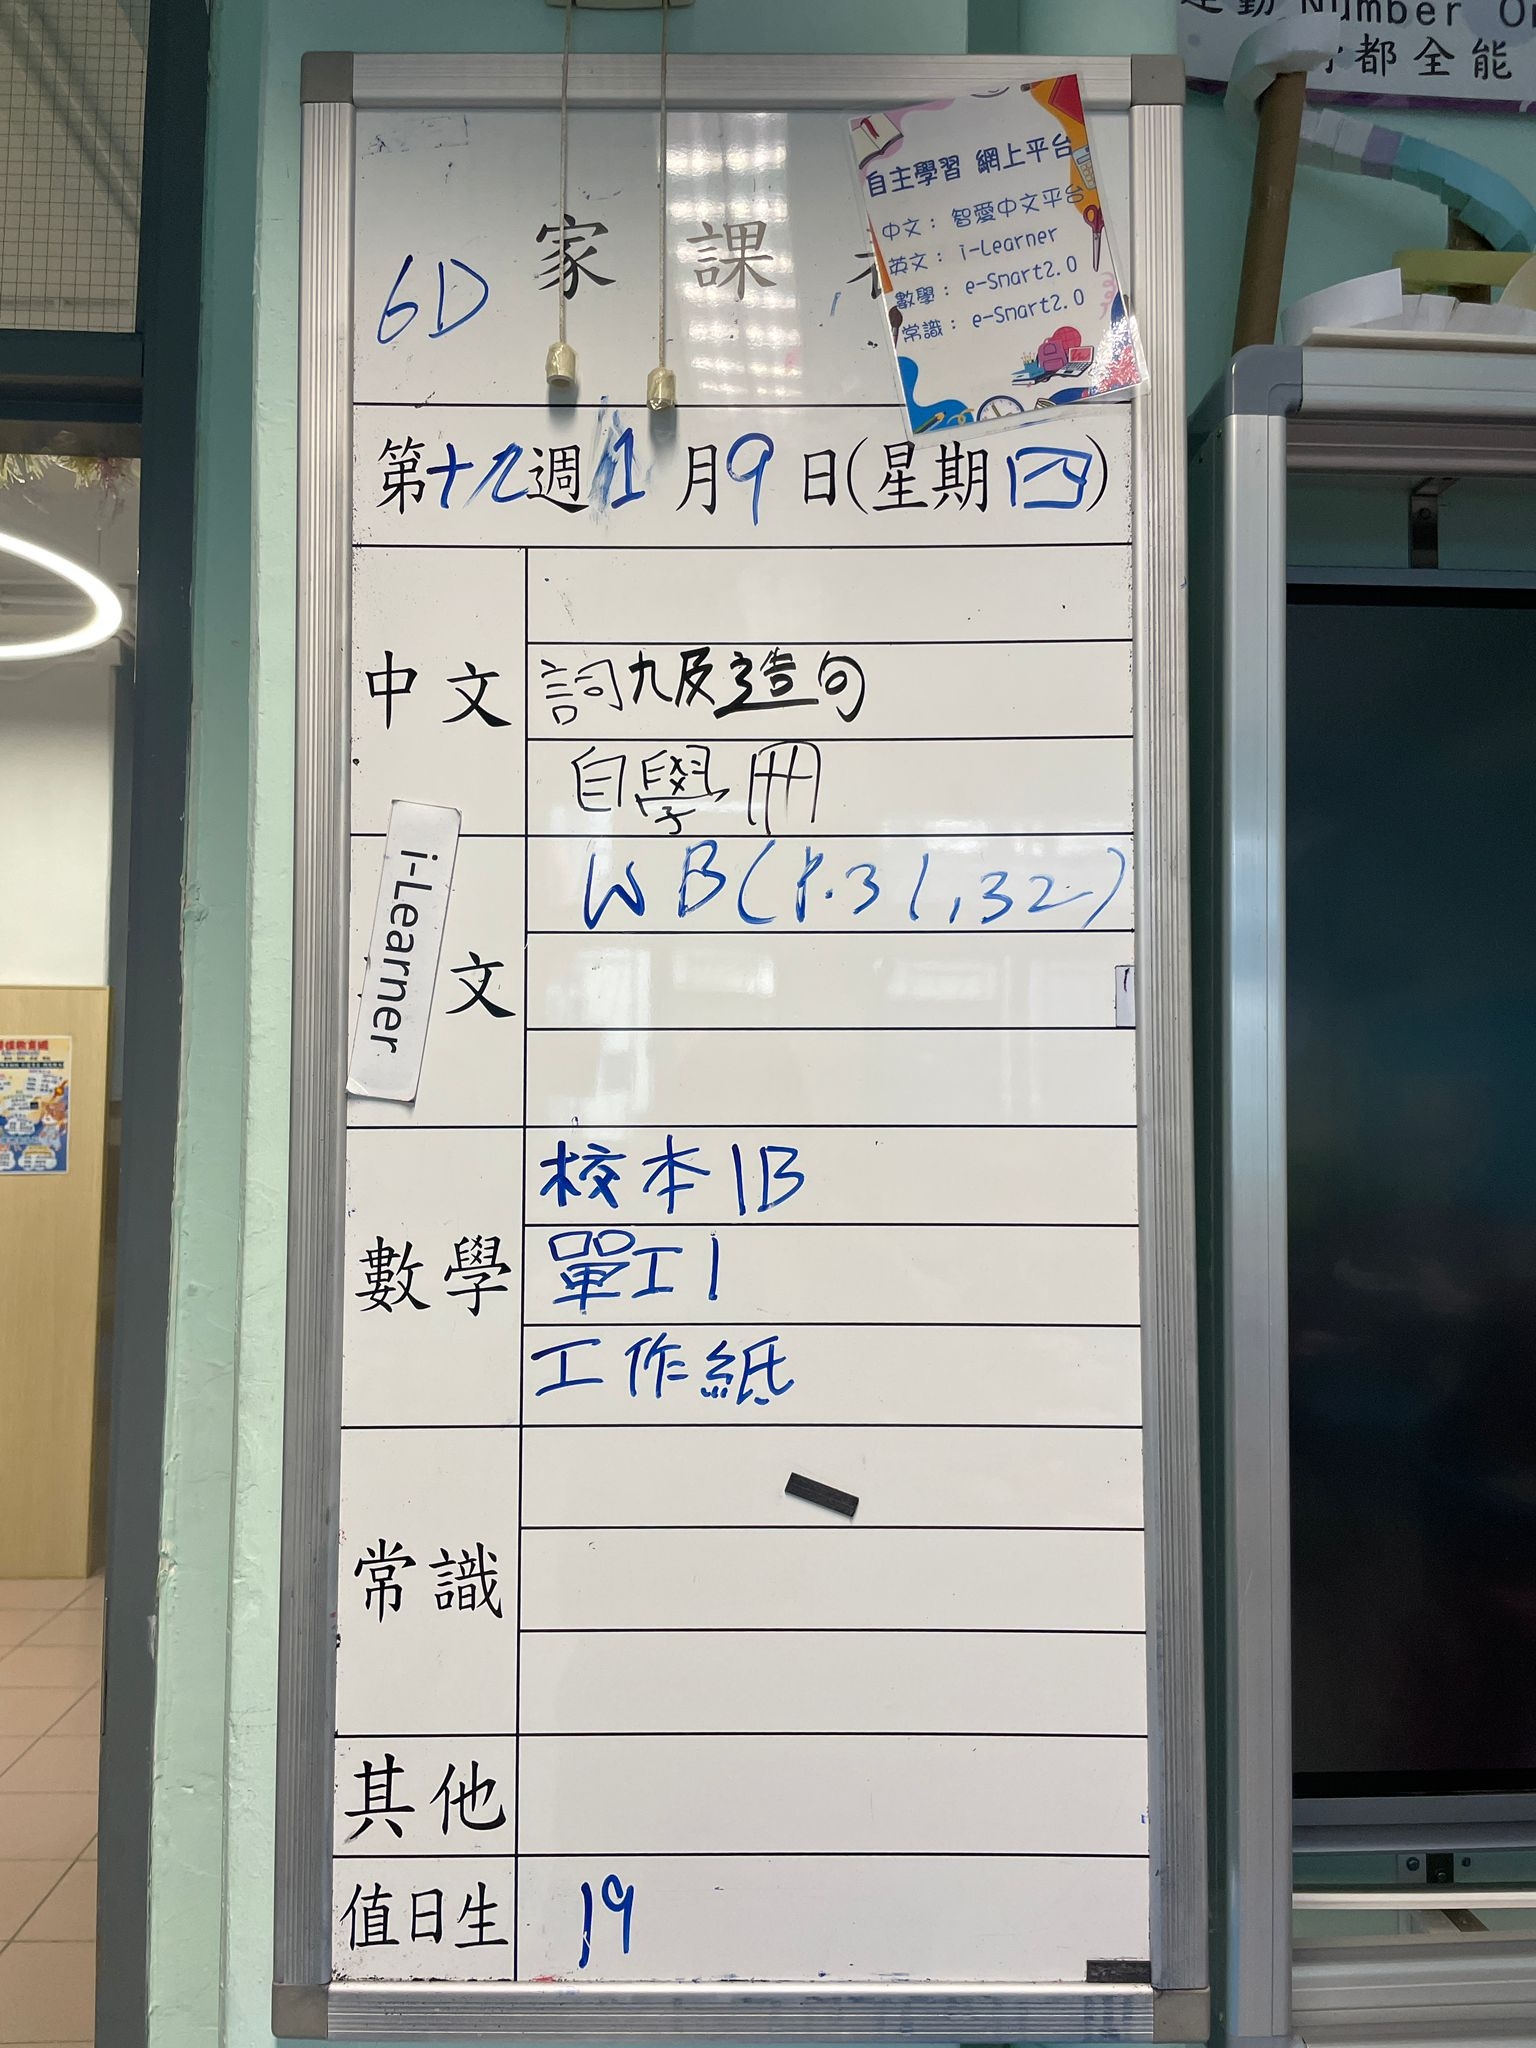 運動 Number On
都全能
家課
6D
自主學習 網上平台
中文： 智愛中文平台
英文： i-Learner
數學： e-Smart2.0
常識： e-Smart2.0
第十九週1月9日(星期四)
中文
詞九及造句
自學冊
i-Learner
文
WB(P.31,32)
數學
校本1B
單工1
工作紙
常識
其他
值日生
19